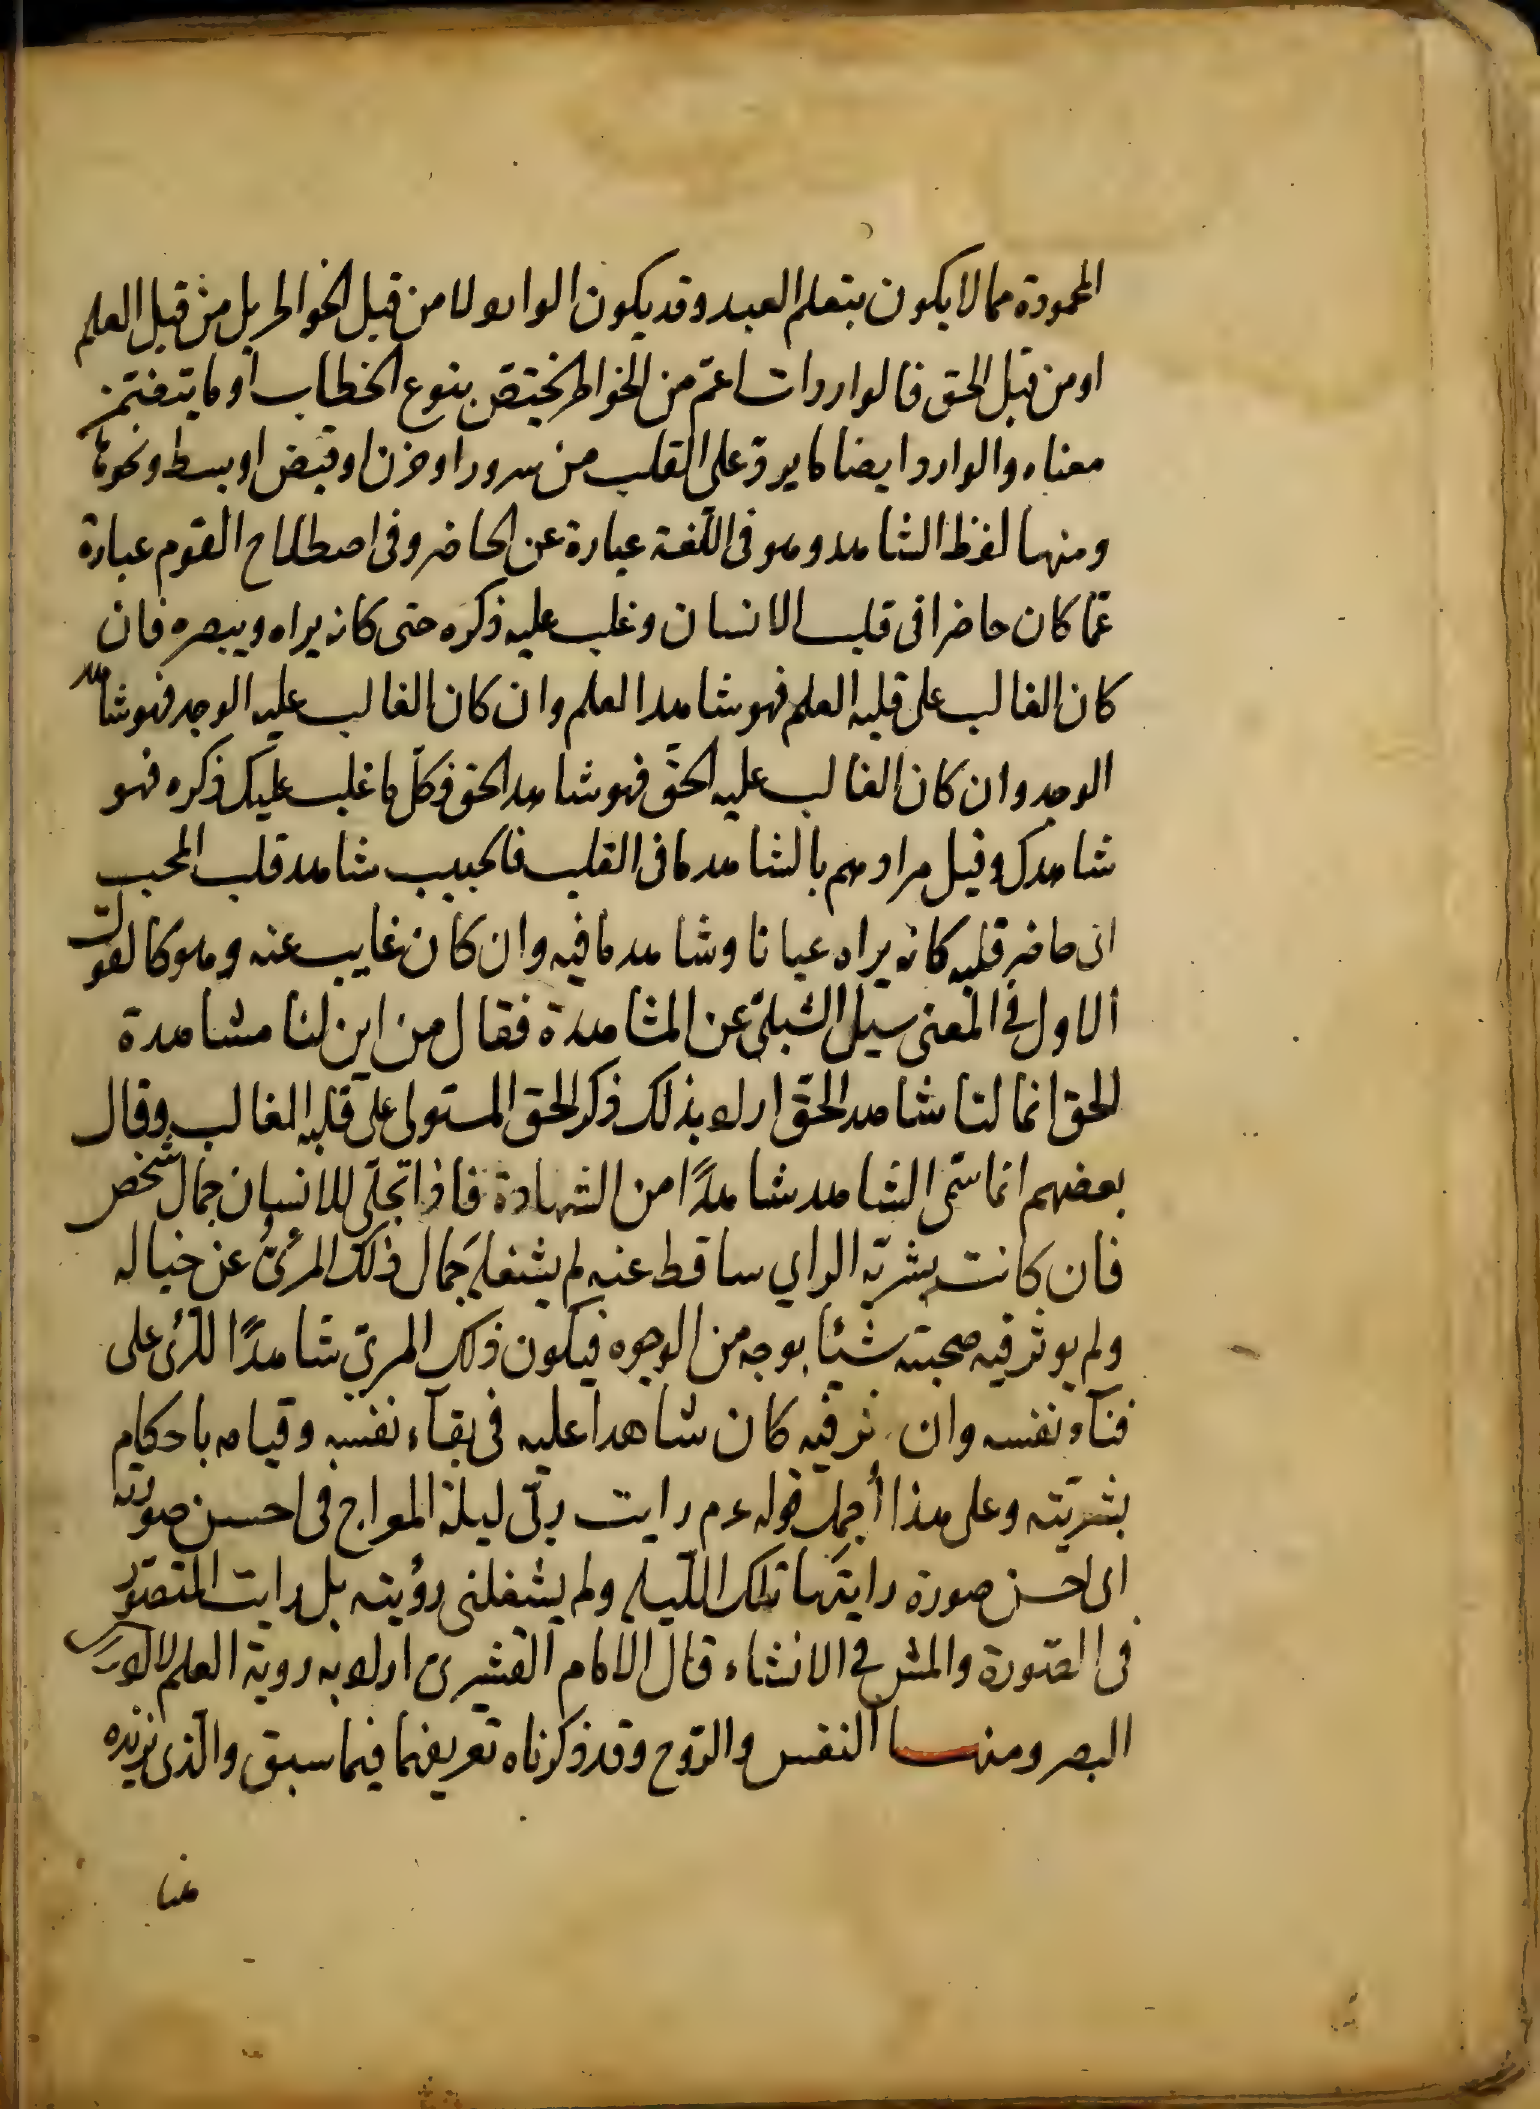 المحمودة مما لا يكون بتعلم العبد وقد يكون الوارد لا من قبل الخواطر بل من قبل العلم
او من قبل الحق فالواردات اعم من الخواطر لتختص بنوع الخطاب او ما يتضمن
معناه والوارد ايضا ما يرد على القلب من سرور او حزن او قبض او بسط ونحوها
ومنها لفظ الشاهد وهو فى اللغة عبارة عن الحاضر وفى اصطلاح القوم عبارة
عما كان حاضرا فى قلب الانسان وغلب عليه ذكره حتى كانه يراه ويبصره فان
كان الغالب على قلبه العلم فهو شاهد العلم وان كان الغالب عليه الوجد فهو شاهد
الوجد وان كان الغالب عليه الحق فهو شاهد الحق فكل ما غلب عليك ذكره فهو
شاهدك وقيل مرادهم بالشاهد ما فى القلب فالحبيب شاهد قلب المحب
اى حاضر قلبه كانه يراه عيانا وشاهد ما فيه وان كان غايب عنه وهو كالقول
الاول فى المعنى سيل الشبلى عن المشاهدة فقال من اين لنا مشاهدة
الحق انما لنا شاهد الحق اراد بذلك ذكر الحق المستولى على قلبه الغالب وقال
بعضهم انما سمى الشاهد شاهدًا من الشهادة فاذا تجلى للانسان جمال شخص
فان كانت بشريته الراى ساقط عنه لم يشغله جمال ذلك المرئى عن خياله
ولم يوثر فيه صحبته شيئا بوجه من الوجوه فيكون ذلك المرئ شاهدًا للرئى على
فناء نفسه وان ثر فيه كان شاهدا عليه فى بقاء نفسه وقيامه باحكام
بشريته وعلى هذا أحمل قوله عم رايت ربى ليلة المعراج فى احسن صورته
اى احسن صورة رايتها تلك الليلة ولم يشغلنى رؤيته بل رايت المتصور
فى الصورة والمنشى فى الانشاء قال الامام القشيرى اراد به روية العلم لا ادراك
البصر ومنها النفس والروح وقد ذكرناه تعريفها فيما سبق والذى نزيده